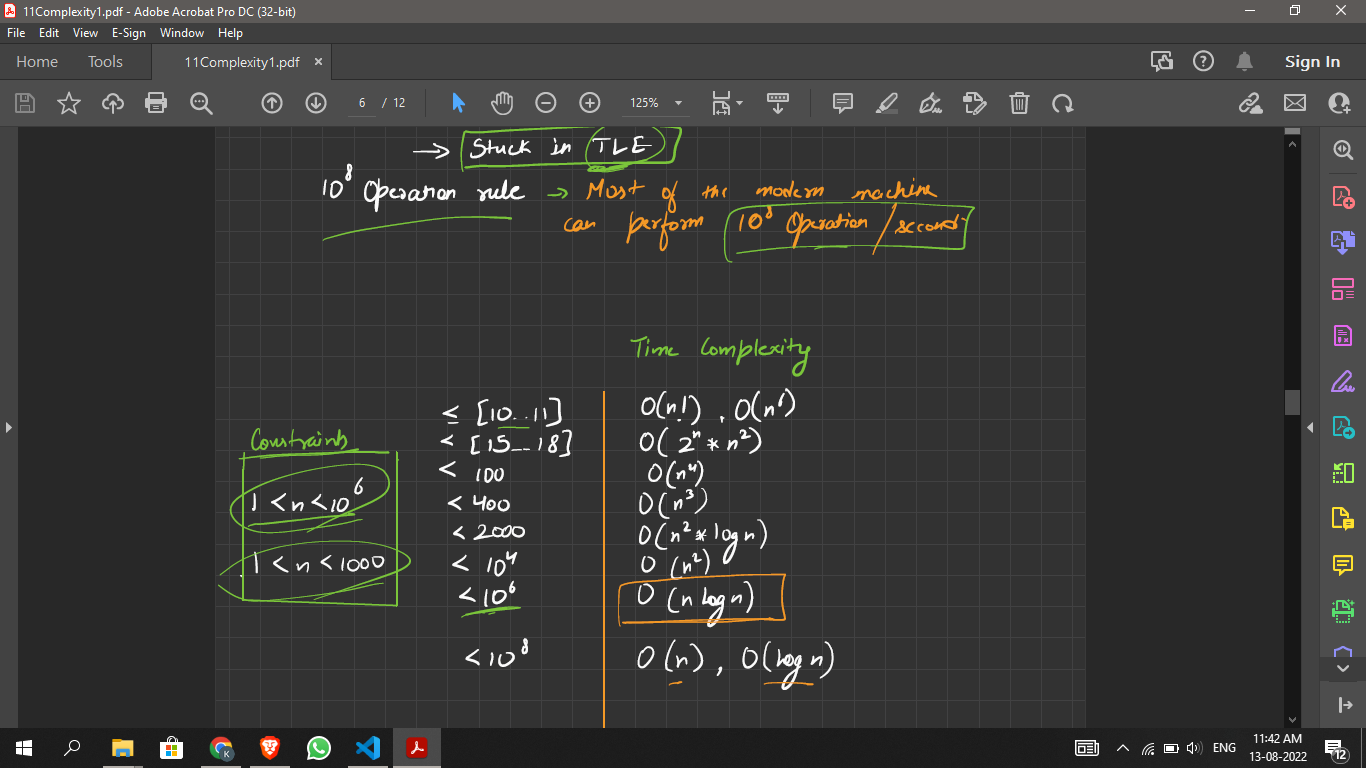 11Complexity1.pdf - Adobe Acrobat Pro DC (32-bit)
File Edit View E-Sign Window Help
Home Tools 11Complexity1.pdf × Sign In
6 / 12 125%
→ Stuck in TLE
10⁸ Operation rule → Most of the modern machine
can perform 10⁸ Operation / second
Time Complexity
≤ [10..11] O(n!), O(n⁶)
Constraints < [15--18] O(2ⁿ * n²)
< 100 O(n⁴)
1 < n < 10⁶ < 400 O(n³)
< 2000 O(n² * log n)
1 < n < 1000 < 10⁴ O(n²)
< 10⁶ O(n log n)
< 10⁸ O(n), O(log n)
K
ENG 11:42 AM
13-08-2022 12